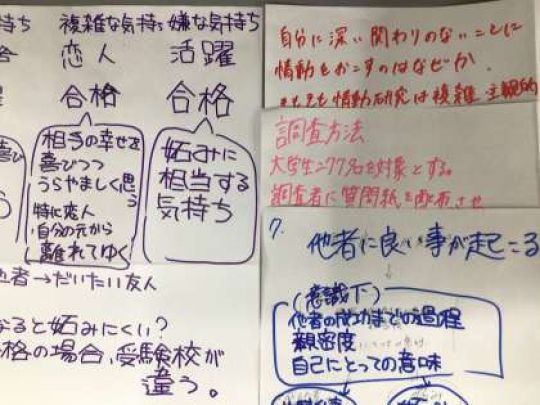 複雑な気持ち
嫌な気持ち
恋人
活躍
合格
合格
相手の幸せを
喜びつつ
うらやましく思う
特に恋人
自分の元から
離れてゆく
妬みに
相当する
気持ち
他者→だいたい友人
なると妬みにくい?
格の場合、受験校が
違う。
自分に深い関わりのないことに
情動をおこすのはなぜか.
そもそも情動研究は複雑 主観的
調査方法
大学生277名を対象とする。
調査者に質問紙を配布させ
7.
他者に良い事が起こる
(意識下)
他者の成功までの過程
親密度
自己にとっての意味